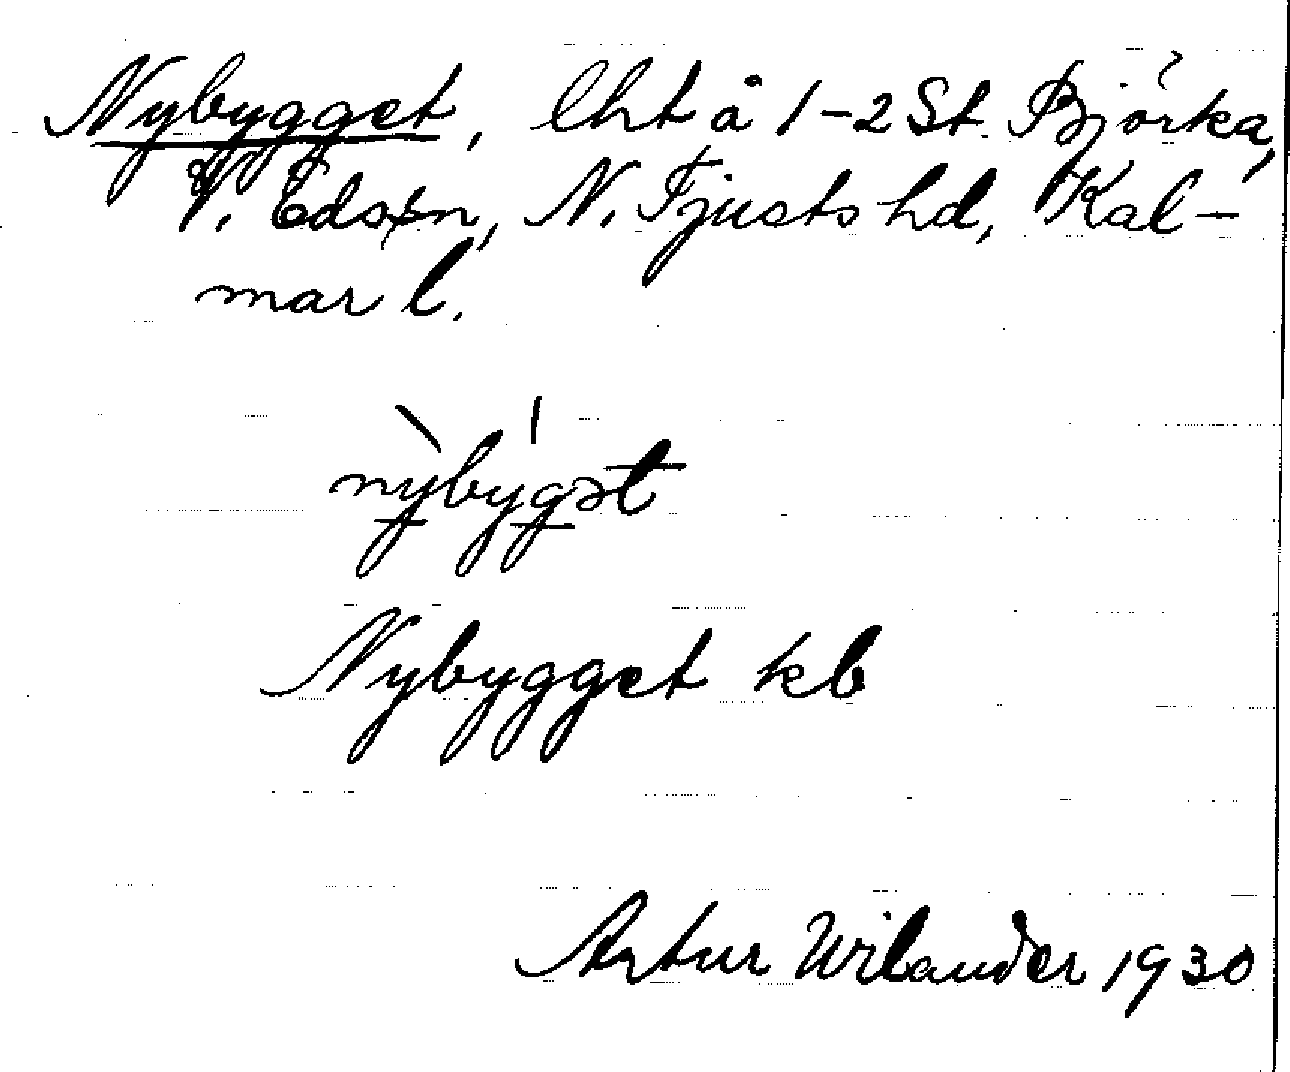 Nybygget, lht å 1-2 St. Björka,
V. Ed sn, N. Tjusts hd, Kal-
mar l.
nỳbýgət
Nybygget kb
Artur Wilander 1930